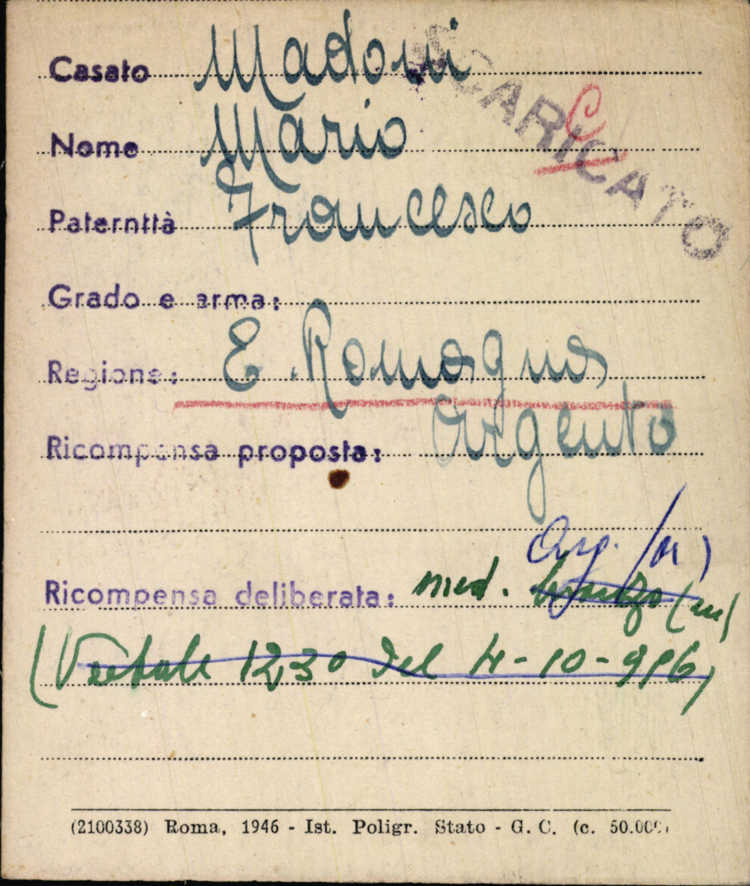 Casato Madoni
SCARICATO
C
Nome Mario
Paternità Francesco
Grado e arma:
Regione: E. Romagna
Ricompensa proposta: Argento
Arg. (m)
Ricompensa deliberata: med. bronzo (m)
(Verbale 1230 del 4-10-946)
(2100338) Roma, 1946 - Ist. Poligr. Stato - G. C. (c. 50.000)